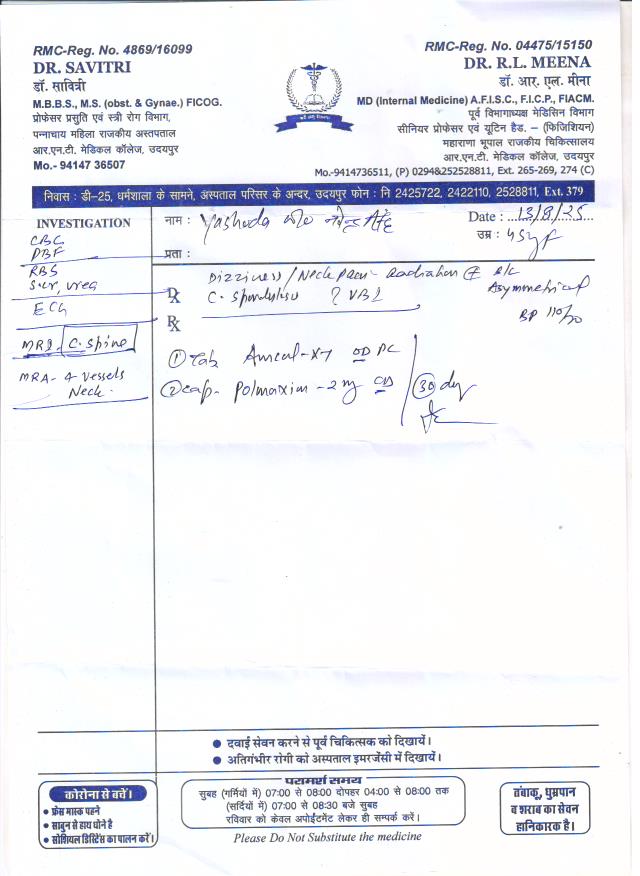 RMC-Reg. No. 4869/16099
DR. SAVITRI
डॉ. सावित्री
M.B.B.S., M.S. (obst. & Gynae.) FICOG.
प्रोफेसर प्रसुति एवं स्त्री रोग विभाग,
पन्नाचाय महिला राजकीय अस्तपताल
आर.एन.टी. मेडिकल कॉलेज, उदयपुर
Mo.- 94147 36507
RMC-Reg. No. 04475/15150
DR. R.L. MEENA
डॉ. आर. एल. मीना
MD (Internal Medicine) A.F.I.S.C., F.I.C.P., FIACM.
पूर्व विभागाध्यक्ष मेडिसिन विभाग
सीनियर प्रोफेसर एवं यूटिन हैड. – (फिजिशियन)
महाराणा भूपाल राजकीय चिकित्सालय
आर.एन.टी. मेडिकल कॉलेज, उदयपुर
Mo.-9414736511, (P) 0294&252528811, Ext. 265-269, 274 (C)
निवास : डी-25, धर्मशाला के सामने, अस्पताल परिसर के अन्दर, उदयपुर फोन : नि 2425722, 2422110, 2528811, Ext. 379
INVESTIGATION
CBC
PBF
RBS
S.cr, urea
ECG
MRI - C. Spine
MRA - 4 Vessels
Neck
नाम : Yashoda
Date : 13/8/25
उम्र : 45yf
प्रता :
Dizziness / Neck Pain - Radiation
Asymmetrical
BP 110/70
Dx C. Spondylosis ? VBI
Rx
① Tab OD PC
② Cap - - 2 mg OD
30 day
● दवाई सेवन करने से पूर्व चिकित्सक को दिखायें।
● अतिगंभीर रोगी को अस्पताल इमरजेंसी में दिखायें।
कोरोना से बचें।
● फ्रेस मास्क पहने
● साबुन से हाथ धोने है
● सोशियल डिस्टिेंस का पालन करें।
परामर्श समय
सुबह (गर्मियों में) 07:00 से 08:00 दोपहर 04:00 से 08:00 तक
(सर्दियों में) 07:00 से 08:30 बजे सुबह
रविवार को केवल अपोईंटमेंट लेकर ही सम्पर्क करें।
Please Do Not Substitute the medicine
तंबाकू, धुम्रपान
व शराब का सेवन
हानिकारक है।